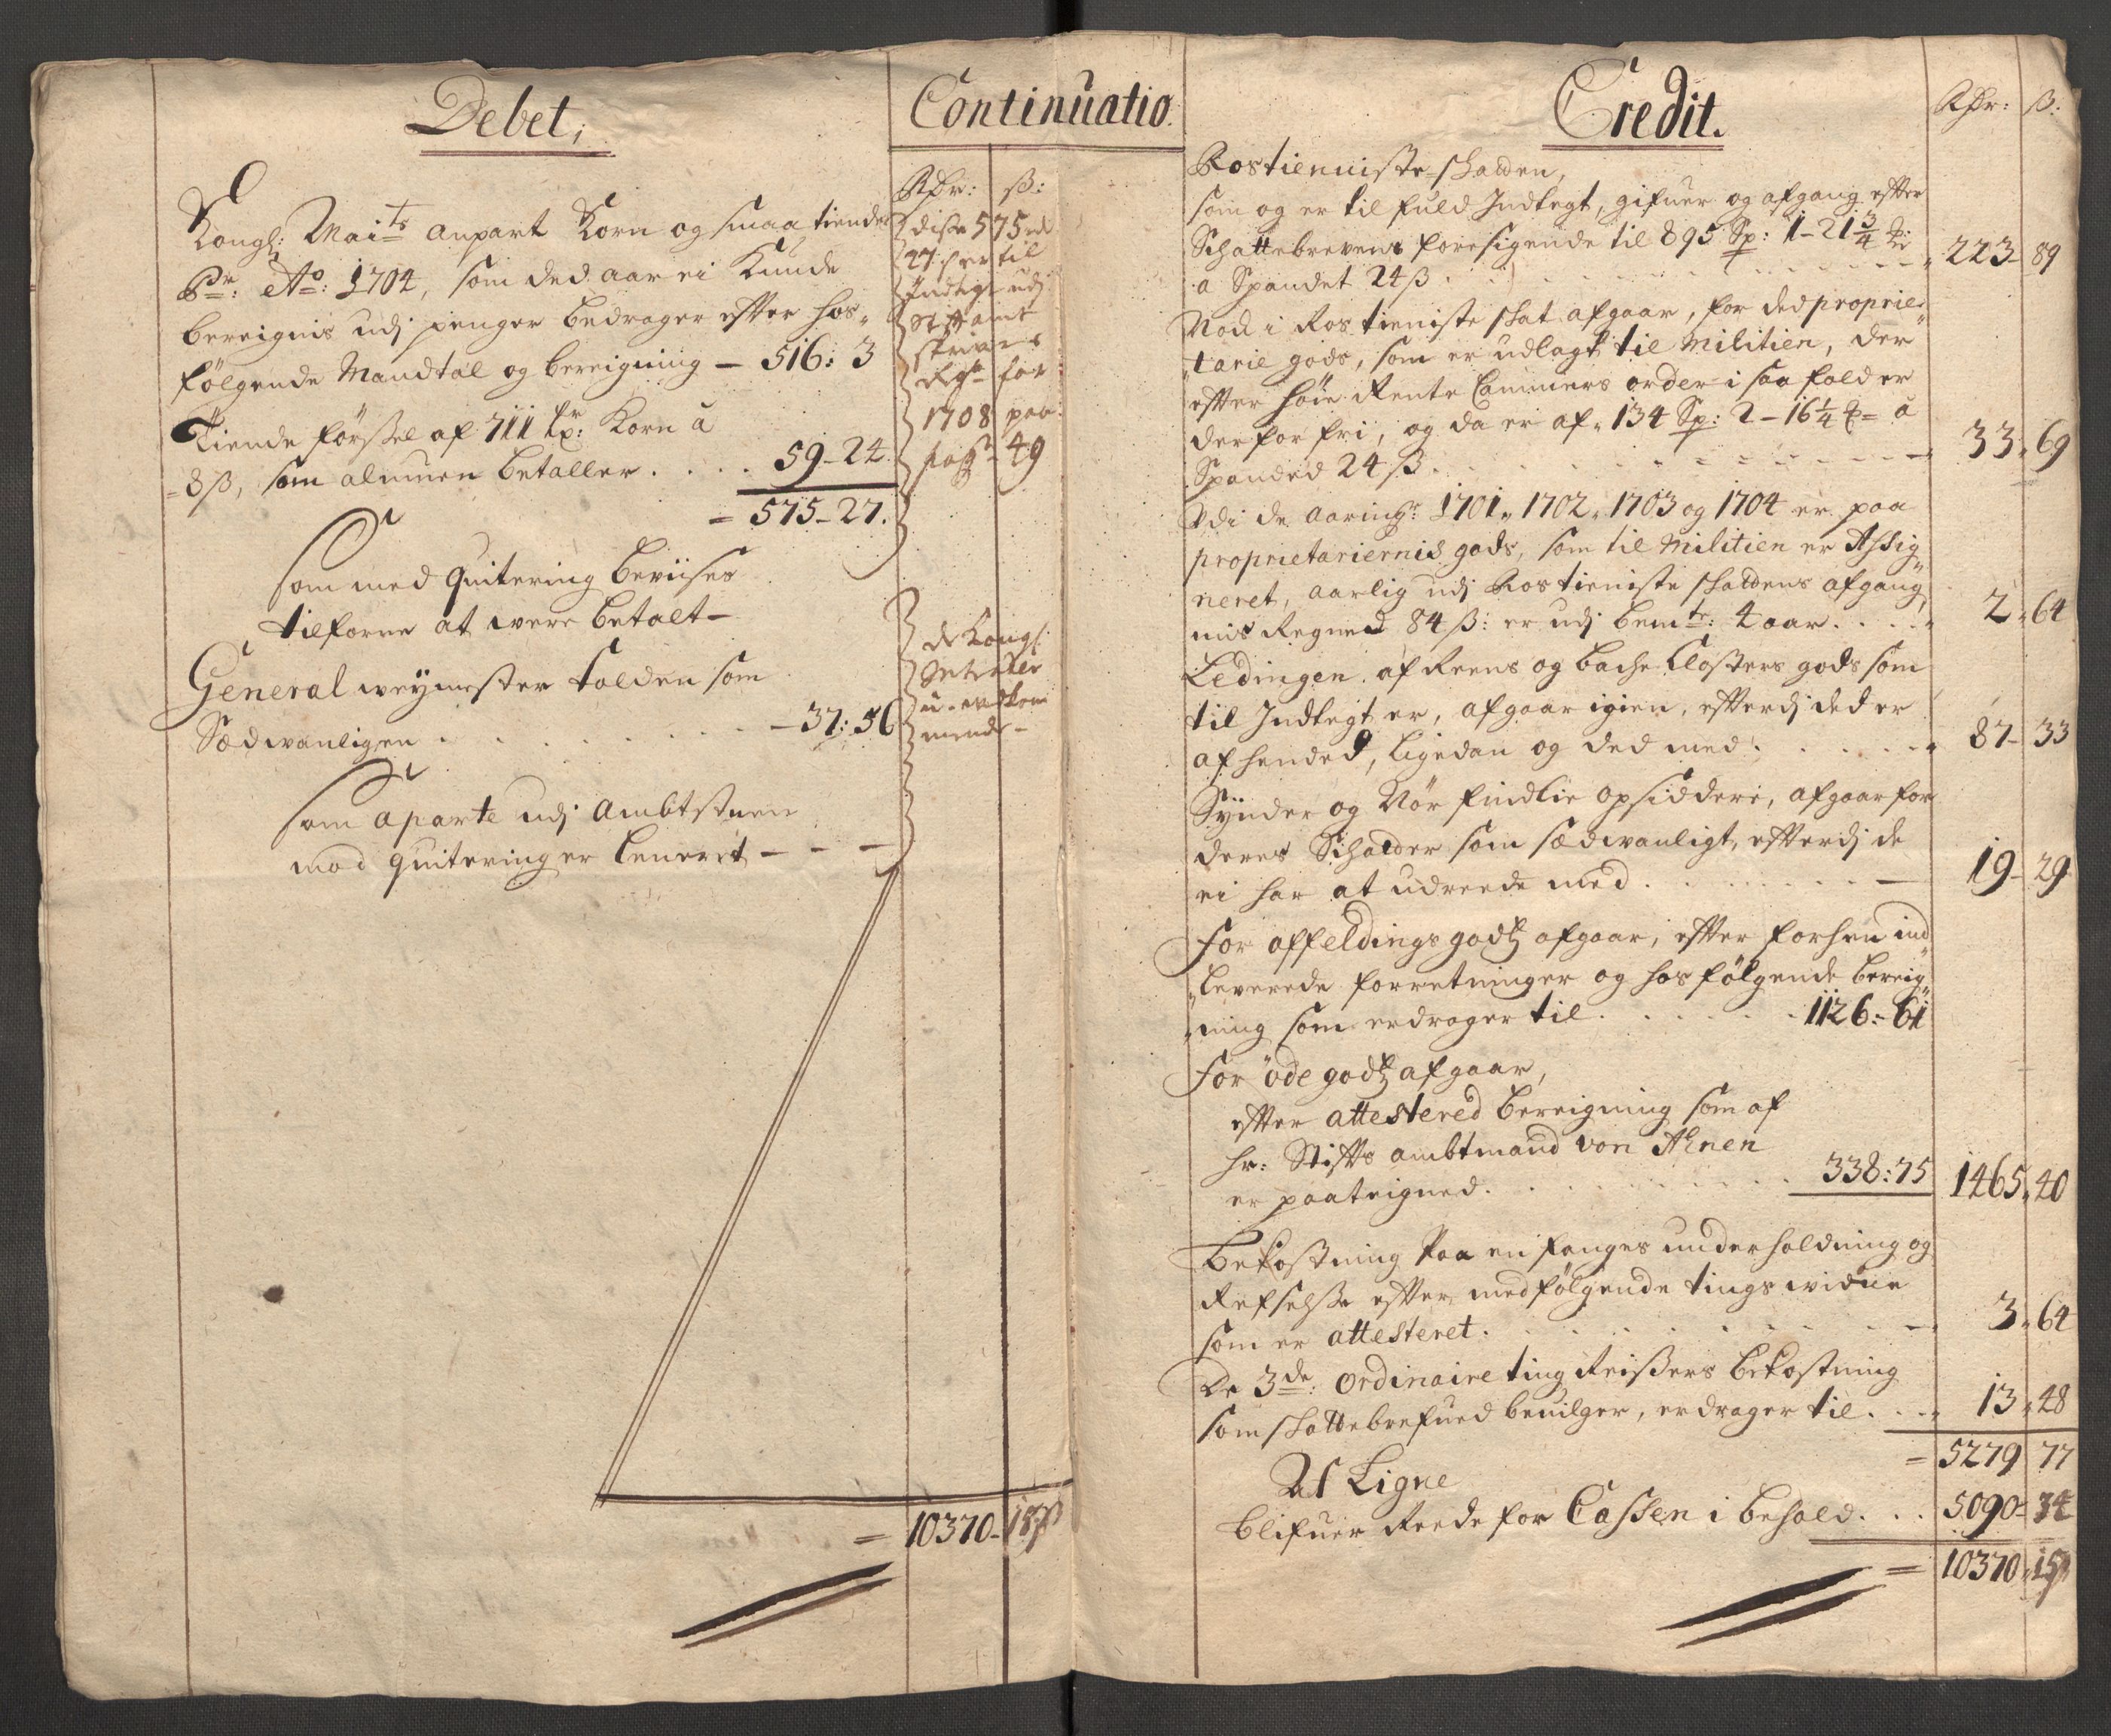 Debet,
Kongl: Maits anpart Korn og smaa tiende
Pr: Ao: 1704, som ded aar ei Kunde
bereignis udj penger bedrager efter hos-
følgende Mandtal og bereigning - 516: 3
Tiende förssel af 711 tr: Korn à
8 ß, som almuen betaller . . . . 59-24.
= 575-27.
som med quitering beviises
tilforne at were betalt -
General weymester tolden som
Sædwanligen . . . . . . . - 37: 56
som aparte udj Ambtstuen
mod quitering er leueret - - -
Continuatio
Rdr: ß:
disse 575 rd
27 ß er til
Indtegt udj
Stiftamt
skrivers
Regn. for
1708 paa
pag 49
de Kongl:
= 10370- 15 ß
Credit.
Rdr: ß:
Rostienniste-skatten,
som og er til fuld Indtegt, gifuer og afgang efter
Schattebrevens foresigende til 895 Sp: 1-21 3/4 
a Spandet 24 ß . . . . . . . . 223- 89
Nok i Rostieniste skat afgaar, for ded proprie-
tarie gods, som er udlagt til Militien, der
efter höie Rente Cammers order i saa fald er
derfor fri, og da er af 134 Sp: 2-16 1/4 = à
Spanded 24 ß . . . . . . . . 33. 69
Udi de aaringr: 1701, 1702, 1703 og 1704 er paa
proprietariernis gods, som til Militien er Assig-
neret, aarlig udj Rostieniste skattens afgang
mis Regned 84 ß: er udj bemte: 4 aar . . . . 2. 64
Ledingen af Reens og Bache Closters gods som
til Indtegt er, afgaar igien, efterdj ded er
afhended, ligedan og ded med . . . . . . 87- 33
Sÿnder og Nör findlie opsiddere, afgaar for
deres Schatter som sædwanligt, efterdj de
ei har at udreede med . . . . . . . 19- 29
For affeldings godtz afgaar, efter forhen ind-
leverede forretninger og hosfölgende bereig-
ning som erdrager til . . . . . . 1126:- 61
For öde godtz afgaar,
efter attestered bereigning som af
hr: Stiffts ambtmand von Ahnen
er paateigned . . . . . . . . 338: 75 1465. 40
Bekostning Paa en fanges underholdning og
Refselsse efter medfölgende tings widne
som er attesteret . . . . . . . . 3. 64
De 3de: ordinaire ting Reissers bekostning
som skattebrefued beuilger, erdrager til . . . 13. 48
= 5279 77
At Ligne
blifuer Reede for Cassen i behold . . . 5090- 34
= 10370. 15 ß